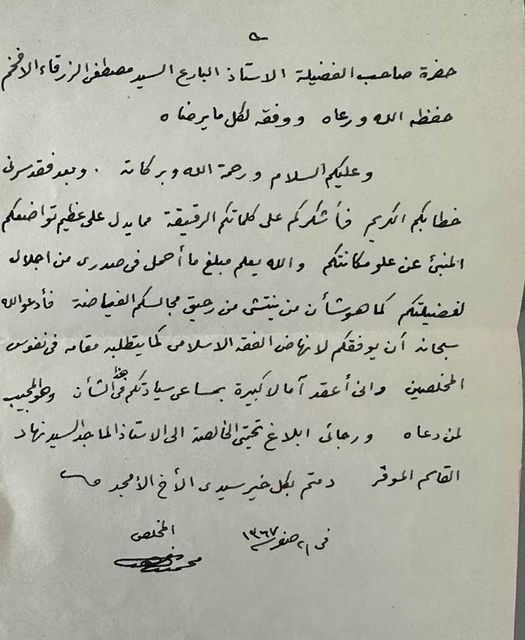 حضرة صاحب الفضيلة الاستاذ البارع السيد مصطفى الزرقاء الافخم
حفظه الله ورعاه ووفقه لكل ما يرضاه
وعليكم السلام ورحمة الله وبركاته . وبعد فقد سرني
خطابكم الكريم فأشكركم على كلماتكم الرقيقة مما يدل على عظيم تواضعكم
المنبئ عن علو مكانتكم والله يعلم مبلغ ما أحمل في صدري من اجلال
لفضيلتكم كما هو شأن من ينتشى من رحيق مجالسكم الفياضة فأدعو الله
سبحانه أن يوفقكم لانهاض الفقه الاسلامى كما يتطلبه مقامه في نفوس
المخلصين وانى أعقد آمالا كبيرة بمساعى سيادتكم في هذا الشأن وهو المجيب
لمن دعاه ورجائى ابلاغ تحيتى الخالصة الى الاستاذ الماجد السيد نهاد
القاسم الموقر دمتم بكل خير سيدى الأخ الأمجد
فى ٢١ صفر سنة ١٣٦٧ المخلص